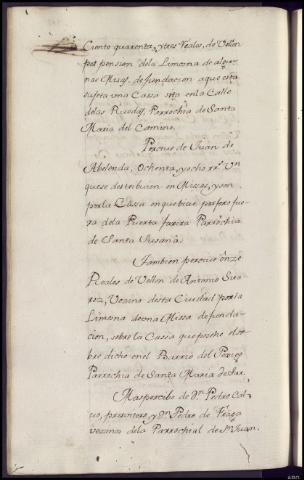 Ciento quarenta, y tres Reales, de Vellon
por pension dela Limosna de algu-
nas Misas, de fundacion aque esta
sujeta una Cassa sita en la Calle
delas Ruedas, Parrochia de Santa
Maria del Camino.
Percivo de Juan de
Abelenda, Ochenta, y ocho rr.s Vn
quese destribuien en Missas, y son
por la Cassa en que bive par fuera
dela Puerta Parrochia
de Santa Susana.
Tambien percivo onze
Reales de Vellon de Antonio Sua
rez, Vezino desta Ciudad por la
Limosna de una Missa de funda-
cion, sobre la Cassa que posehe el so-
bre dicho en el Barrio del
Parrochia de Santa Maria de Sar,
Mas percibo de D.n Pedro Cal
vo, presvitero, y D.n Pedro de Fraga
vezinos dela Parrochial de S.n Juan,